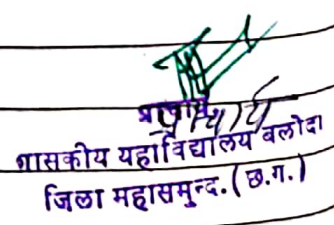 प्राचार्य
शासकीय महाविद्यालय बलोदा
जिला महासमुन्द.(छ.ग.)